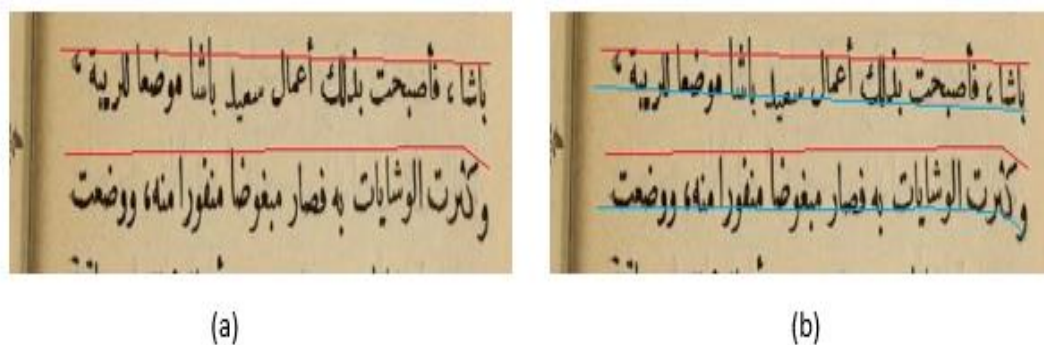 باشا ، فأصبحت بذلك أعمال سعيد باشا موضعا للريبة ،
وكثرت الوشايات به فصار مبغوضا منفورا منه، ووضعت
(a)
باشا ، فأصبحت بذلك أعمال سعيد باشا موضعا للريبة ،
وكثرت الوشايات به فصار مبغوضا منفورا منه، ووضعت
(b)